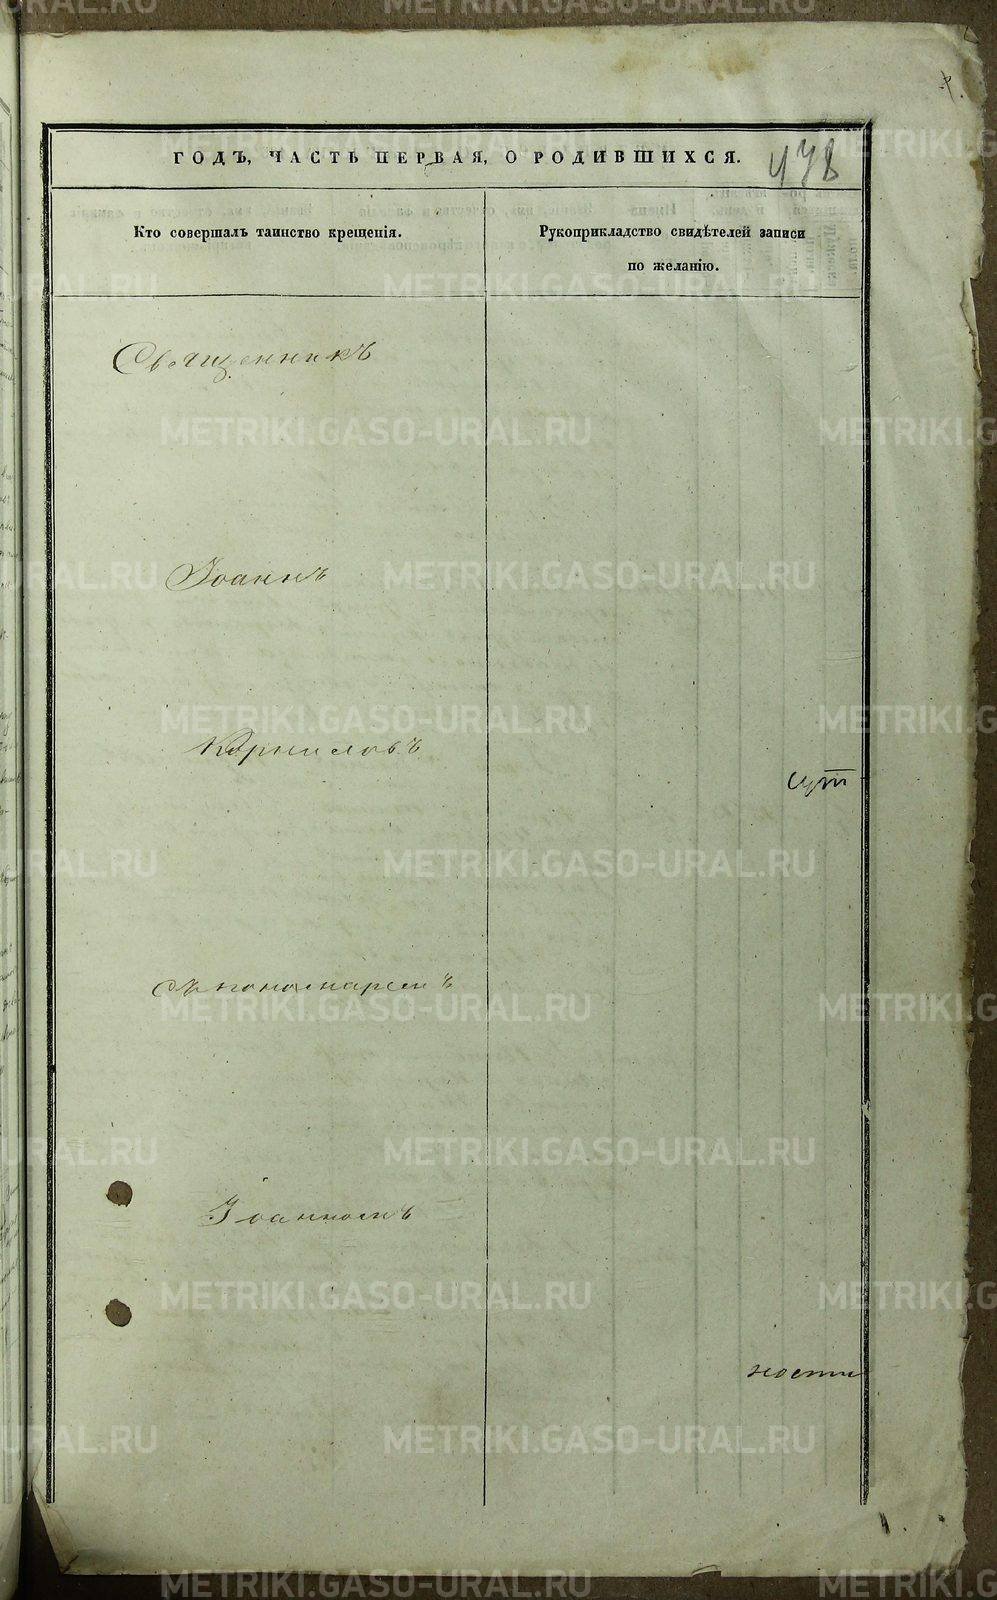 ГОДЪ, ЧАСТЬ ПЕРВАЯ, О РОДИВШИХСЯ.
478
Кто совершалъ таинство крещенія.
Рукоприкладство свидѣтелей записи
по желанію.
Священникъ
Іоаннъ
Корниловъ
съ пономаремъ
Іоанномъ
ности
METRIKI.GASO-URAL.RU